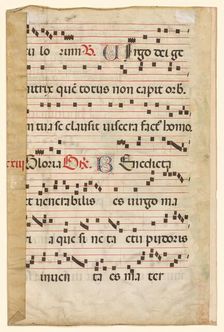 u lo rum R. Virgo dei ge
nitrix que totus non capit orb.
In tua se clausit viscera fact homo.
Gloria Benedicta
et venerabilis es virgo ma
ria que si ne ta ctu pudoris
inven ta es ma ter